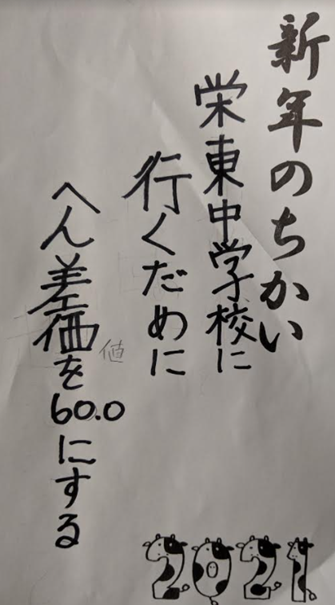 新年のちかい
栄東中学校に
行くだめに
へん差価を60.0にする
値
2021